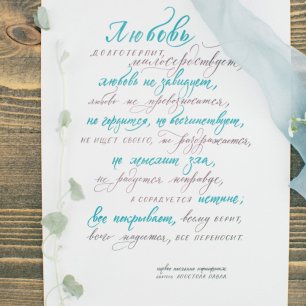 Любовь
ДОЛГОТЕРПИТ,
милосердствует,
любовь не завидует,
любовь не превозносится,
не гордится, не бесчинствует,
НЕ ИЩЕТ СВОЕГО, не раздражается,
не мыслит зла,
не радуется неправде,
А СОРАДУЕТСЯ истине;
все покрывает, всему верит,
всего надеется, ВСЕ ПЕРЕНОСИТ.
первое послание коринфянам
АПОСТОЛА ПАВЛА